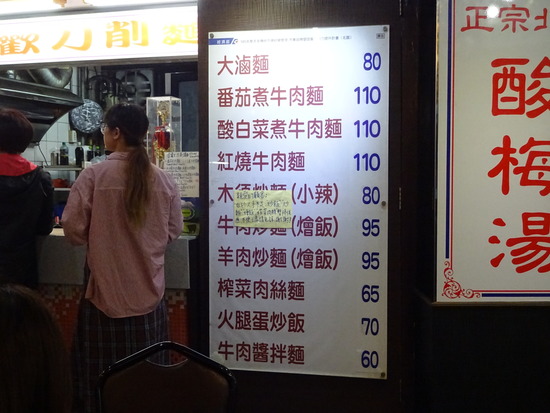 歡刀削麵
大滷麵 80
番茄煮牛肉麵 110
酸白菜煮牛肉麵 110
紅燒牛肉麵 110
木須炒麵(小辣) 80
牛肉炒麵(燴飯) 95
羊肉炒麵(燴飯) 95
榨菜肉絲麵 65
火腿蛋炒飯 70
牛肉醬拌麵 60
正宗北
酸梅湯